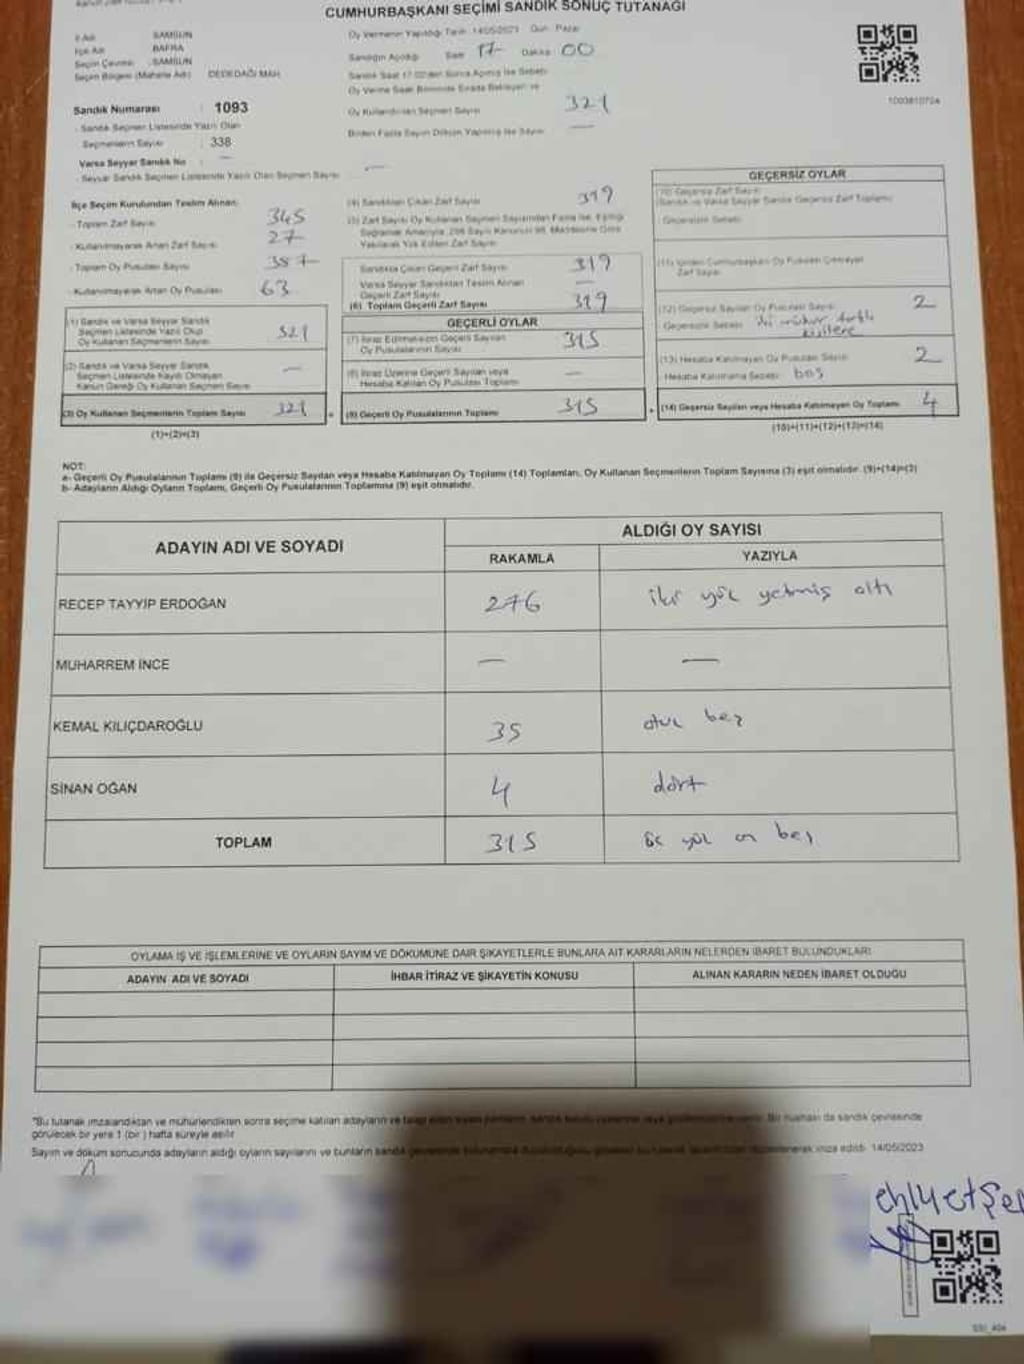 CUMHURBAŞKANI SEÇİMİ SANDIK SONUÇ TUTANAĞI
İl Adı : SAMSUN
İlçe Adı : BAFRA
Seçim Çevresi : SAMSUN
Seçim Bölgesi (Mahalle Adı) : DEDEDAĞI MAH.
Sandık Numarası : 1093
- Sandık Seçmen Listesinde Yazılı Olan
Seçmenlerin Sayısı : 338
Varsa Seyyar Sandık No : —
- Seyyar Sandık Seçmen Listesinde Yazılı Olan Seçmen Sayısı —
Oy Vermenin Yapıldığı Tarih 14/05/2023 Gün Pazar
Sandığın Açıldığı Saat 17 Dakika 00
Sandık Saat 17:00'den Sonra Açılmış İse Sebebi
Oy Verme Saati Bitiminde Sırada Bekleyen ve
Oy Kullandırılan Seçmen Sayısı 321
Birden Fazla Sayım Döküm Yapılmış İse Sayısı —
1093810724
İlçe Seçim Kurulundan Teslim Alınan:
- Toplam Zarf Sayısı 345
- Kullanılmayarak Artan Zarf Sayısı 27
- Toplam Oy Pusulası Sayısı 387
- Kullanılmayarak Artan Oy Pusulası 63
(1) Sandık ve Varsa Seyyar Sandık
Seçmen Listesinde Yazılı Olup
Oy Kullanan Seçmenlerin Sayısı 321
(2) Sandık ve Varsa Seyyar Sandık
Seçmen Listesinde Kayıtlı Olmayan
Kanun Gereği Oy Kullanan Seçmen Sayısı —
(3) Oy Kullanan Seçmenlerin Toplam Sayısı 321
(1)+(2)=(3)
(4) Sandıktan Çıkan Zarf Sayısı 319
(5) Zarf Sayısı Oy Kullanan Seçmen Sayısından Fazla İse, Eşitliği
Sağlamak Amacıyla, 298 Sayılı Kanunun 98. Maddesine Göre
Yakılarak Yok Edilen Zarf Sayısı
Sandıkta Çıkan Geçerli Zarf Sayısı 319
Varsa Seyyar Sandıktan Teslim Alınan
Geçerli Zarf Sayısı —
(6) Toplam Geçerli Zarf Sayısı 319
GEÇERLİ OYLAR
(7) İtiraz Edilmeksizin Geçerli Sayılan
Oy Pusulalarının Sayısı 315
(8) İtiraz Üzerine Geçerli Sayılan veya
Hesaba Katılan Oy Pusulası Toplamı —
(9) Geçerli Oy Pusulalarının Toplamı 315
GEÇERSİZ OYLAR
(10) Geçersiz Zarf Sayısı
(Sandık ve Varsa Seyyar Sandık Geçersiz Zarf Toplamı)
Geçersizlik Sebebi
(11) İçinden Cumhurbaşkanı Oy Pusulası Çıkmayan
Zarf Sayısı
(12) Geçersiz Sayılan Oy Pusulası Sayısı 2
Geçersizlik Sebebi iki mühür farklı
kişilere
(13) Hesaba Katılmayan Oy Pusulası Sayısı 2
Hesaba Katılmama Sebebi boş
(14) Geçersiz Sayılan veya Hesaba Katılmayan Oy Toplamı 4
(10)+(11)+(12)+(13)=(14)
NOT:
a- Geçerli Oy Pusulalarının Toplamı (9) ile Geçersiz Sayılan veya Hesaba Katılmayan Oy Toplamı (14) Toplamları, Oy Kullanan Seçmenlerin Toplam Sayısına (3) eşit olmalıdır. (9)+(14)=(3)
b- Adayların Aldığı Oyların Toplamı, Geçerli Oy Pusulalarının Toplamına (9) eşit olmalıdır.
ADAYIN ADI VE SOYADI
ALDIĞI OY SAYISI
RAKAMLA YAZIYLA
RECEP TAYYİP ERDOĞAN 276 iki yüz yetmiş altı
MUHARREM İNCE — —
KEMAL KILIÇDAROĞLU 35 otuz beş
SİNAN OĞAN 4 dört
TOPLAM 315 üç yüz on beş
OYLAMA İŞ VE İŞLEMLERİNE VE OYLARIN SAYIM VE DÖKÜMÜNE DAİR ŞİKAYETLERLE BUNLARA AİT KARARLARIN NELERDEN İBARET BULUNDUKLARI
ADAYIN ADI VE SOYADI İHBAR İTİRAZ VE ŞİKAYETİN KONUSU ALINAN KARARIN NEDEN İBARET OLDUĞU
*Bu tutanak imzalandıktan ve mühürlendikten sonra seçime katılan adayların ve Bir nüshası da sandık çevresinde
görülecek bir yere 1 (bir) hafta süreyle asılır
Sayım ve döküm sonucunda adayların aldığı oyların sayılarını ve bunların imza edildi 14/05/2023